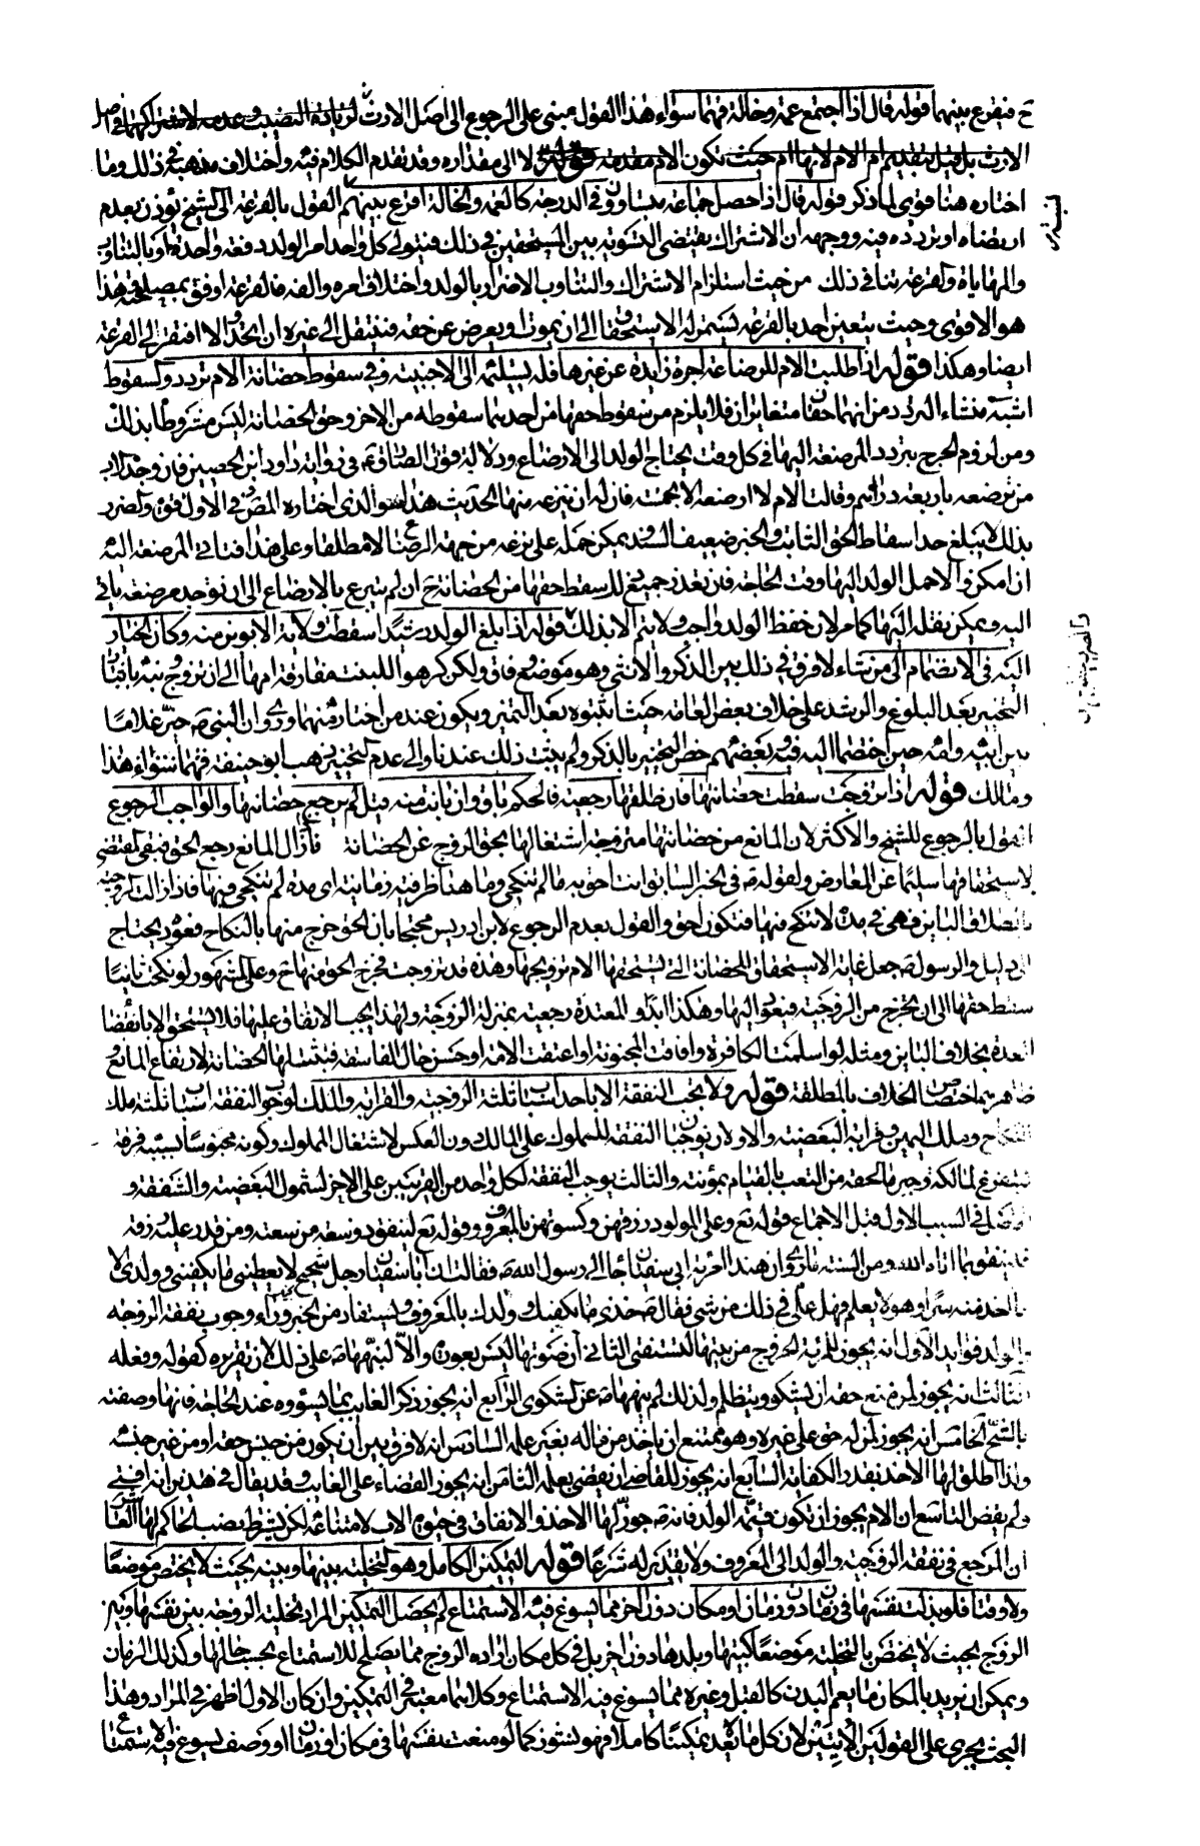 ح فيقرع بينهما قوله قال اذا اجتمع عمة وخالة فهما سواء هذا القول مبنى على الرجوع الى اصل الارث
الارث بل قيل بتقديم ام الام لانها ام حيث تكون الام مقدمة قوله لا الى مقداره وقد تقدم الكلام فيه واختلاف مذهبه فى ذلك وما
اختاره هنا قوى لما ذكر قوله قال اذا حصل جماعة متساوون فى الدرجة كالعمة والخالة اقرع بينهم القول بالقرعة الى الشيخ يؤذن بعدم
ارتضاه او تردده فيه ووجهه ان الاشتراك يقتضى التسوية بين المستحقين فى ذلك فتولى كل واحد امر الولد دفعة واحدة او بالتناوب
والمهاياة والقرعة تنافى ذلك من حيث استلزام الاشتراك والتناوب الاضرار بالولد واختلاف امره والفه فالقرعة اوفق بمصلحته هذا
هو الاقوى وحيث يتعين احد بالقرعة يستمر له الاستحقاق الى ان يموت او يعرض عن حقه فينتقل الى غيره ان اتحد والا افتقر الى القرعة
ايضا وهكذا قوله اذا طلبت الام للرضاعة اجرة زايدة عن غيرها فله تسليمه الى الاجنبية وفى سقوط حضانة الام تردد والسقوط
اشبه منشاء التردد من انهما حقان متغايران فلا يلزم من سقوط حقها من احدهما سقوطه من الاخر وحق الحضانة ليس مشروطا بذلك
ومن لزوم الحرج بتردد المرضعة اليها فى كل وقت يحتاج الولد الى الارضاع ودلالة قول الصادق ع فى رواية داود ابن الحصين فان وجد الاب
من ترضعه باربعة دراهم وقالت الام لا ارضعه الا بخمسة فان له ان ينزعه منها الحديث هذا هو الذى اختاره المص فى الاول قوى والضرر
بذلك لا يبلغ حد اسقاط الحق الثابت والخبر ضعيف السند ويمكن حمله على نزعه من جهة الرضاع لا مطلقا وعلى هذا فتاتى المرضعة اليه
ان امكن والا حمل الولد اليها وقت الحاجة فان تعذر جميع ذلك سقط حقها من الحضانة ح ان لم تتبرع بالارضاع الى ان توجد مرضعة ياتى
اليه ويمكن نقله اليها كما مر لان حفظ الولد واجب ولا يتم الا بذلك قوله اذا بلغ الولد رشيدا سقطت ولاية الابوين منه وكان الخيار
اليه فى الانضمام الى من شاء لا فرق فى ذلك بين الذكر والانثى وهو موضع وفاق ولكن كره للبنت مفارقة امها الى ان تزوج
التخيير بعد البلوغ والرشد على خلاف بعض العامة حيث اثبتوه بعد التميز ويكون عند من اختار منهما وروى ان النبى ص خير غلاما
بين ابيه وامه حين اختصما اليه فيه وبعضهم خص التخيير بالذكر ولم يثبت ذلك عندنا والى عدم التخيير ذهب ابو حنيفة فهما سواء هذا
ومالك قوله اذا تزوجت سقطت حضانتها فان طلقها رجعية فالحكم باق وان بانت منه قيل لم يرجع حضانتها والوجه الرجوع
القول بالرجوع للشيخ والاكثر لان المانع من حضانتها متزوجة اشتغالها بحق الزوج عن الحضانة فاذا زال المانع رجع الحق تبقى مقتضى
لاستحقاقها سليما عن المعارض ولقوله ص فى الخبر السابق انت احق به ما لم تنكحى وما هنا ظرفية زمانية اى مدة لم تنكحى فيها فاذا زالت الزوجية
بالطلاق البائن فهى فى مدة لا تنكح فيها فتكون احق والقول بعدم الرجوع لابن ادريس محتجا بان الحق خرج منها بالنكاح فعوده يحتاج
الى دليل والرسول ص جعل غاية الاستحقاق للحضانة التى تستحقها الام تزويجها وهذه قد تزوجت فخرج الحق منها ح وعلى المشهور لو نكحت ثانيا
سقط حقها الى ان تخرج من الزوجية فيعود اليها وهكذا ابدا والمعتدة رجعية بمنزلة الزوجة ولهذا يجب الانفاق عليها فلا تستحق الا بانقضاء
العدة بخلاف البائن ومثله لو اسلمت الكافرة وافاقت المجنونة او اعتقت الامة او حسن حال الفاسقة فتثبت لها الحضانة لارتفاع المانع
ظاهرهم اختصاص الخلاف بالمطلقة قوله ولا يجب النفقة الا باحد اسباب ثلثة الزوجية والقرابة والملك لوجوب النفقة اسباب ثلثة ملك
النكاح وملك اليمين وقرابة البعضية والاولان يوجبان النفقة للمملوك على المالك دون العكس لاشتغال المملوك وكونه محبوسا بسببه فرقة
ليتفرغ لمالكه وجبر ما لحقه من التعب بالقيام بمؤنته والثالث يوجب النفقة لكل واحد من القريبين على الاخر لشمول البعضية والشفقة و
الاصل فى السبب الاول قبل الاجماع قوله تع وعلى المولود له رزقهن وكسوتهن بالمعروف وقوله تع لينفق ذو سعة من سعته ومن قدر عليه رزقه
فلينفق مما اتاه الله ومن السنة ما روى ان هندا امراة ابى سفيان جائت الى رسول الله ص فقالت ان ابا سفيان رجل شحيح لا يعطينى ما يكفينى وولدى الا
ما اخذ منه سرا وهو لا يعلم فهل على فى ذلك من شئ فقال ص خذى ما يكفيك وولدك بالمعروف ويستفاد من الخبر وراء وجوب نفقة الزوجة
والولد فوايد الاول انه يجوز للمراة الخروج من بيتها لتستفتى الثانى ان صوتها ليس بعورة والا لنبهها ص على ذلك لان تقريره كقوله وفعله
الثالث انه يجوز لمن منع حقه ان يشكو ويتظلم ولذلك لم ينهها ص عن الشكوى الرابع انه يجوز ذكر الغايب بما يسؤوه عند الحاجة فانها وصفته
بالشح الخامس انه يجوز لمن له حق على غيره وهو ممتنع ان ياخذ من ماله بغير علمه السادس انه لا فرق بين ان يكون من جنس حقه او من غير جنسه
ولذا اطلق لها الاخذ بقدر الكفاية السابع انه يجوز للقاضى ان يقضى بعلمه الثامن انه يجوز القضاء على الغايب وقد يقال فى هذين انه افتى
ولم يقض التاسع ان الام يجوز ان تكون قيمة الولد فانه ص جوز لها الاخذ والانفاق فى حيوة الاب لامتناعه لكن يشترط نصب الحاكم لها العاشر
ان المرجع فى نفقة الزوجة والولد الى المعروف ولا يقدر له شرعا قوله التمكين الكامل وهو التخلية بينها وبينه بحيث لا يختص موضعا
ولا وقتا فلو بذلت نفسها فى زمان دون زمان او مكان دون اخر مما يسوغ فيه الاستمتاع لم يحصل التمكين المراد بتخلية الزوجة بين نفسها وبين
الزوج بحيث لا يختص بالتخلية موضعا كبيتها وبلدها دون اخر بل فى كل مكان اراده الزوج مما يصلح للاستمتاع بحسب حالها وكذلك الزمان
ويمكن ان يريد بالمكان ما يعم البدن كالقبل وغيره مما يسوغ فيه الاستمتاع وكلاهما معتبر فى التمكين وان كان الاول اظهر فى المراد وهذا
البحث يجرى على القولين الاتيين لان كل ما لا يعد تمكينا كاملا فهو نشوز كما لو منعت نفسها فى مكان او زمان او وصف يسوغ فيه الاستمتاع